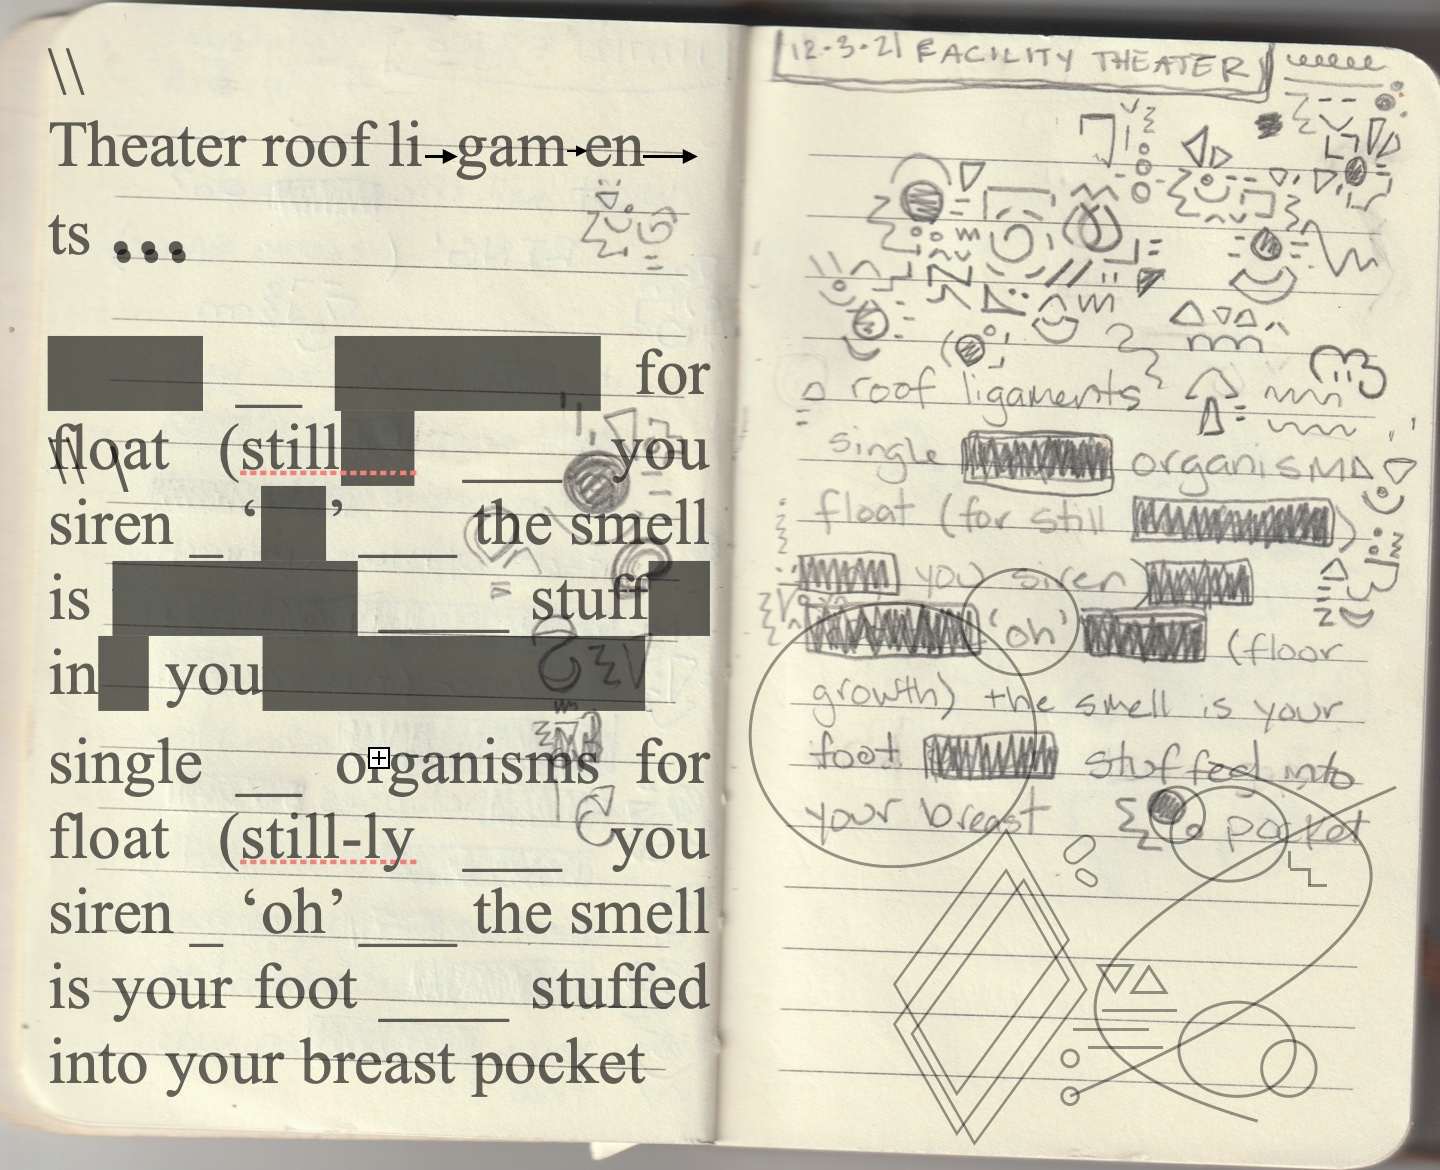 \\
Theater roof li→gam→en→
ts ...
___ for
float (still ___ you
siren _ ‘ ’ ___ the smell
is ____ stuff
in you
single __ organisms for
float (still-ly ___ you
siren _ ‘oh’ ___ the smell
is your foot ____ stuffed
into your breast pocket
12.3.21 FACILITY THEATER
roof ligaments
single organism
float (for still )
you siren)
‘oh’ (floor
growth) the smell is your
foot stuffed into
your breast pocket